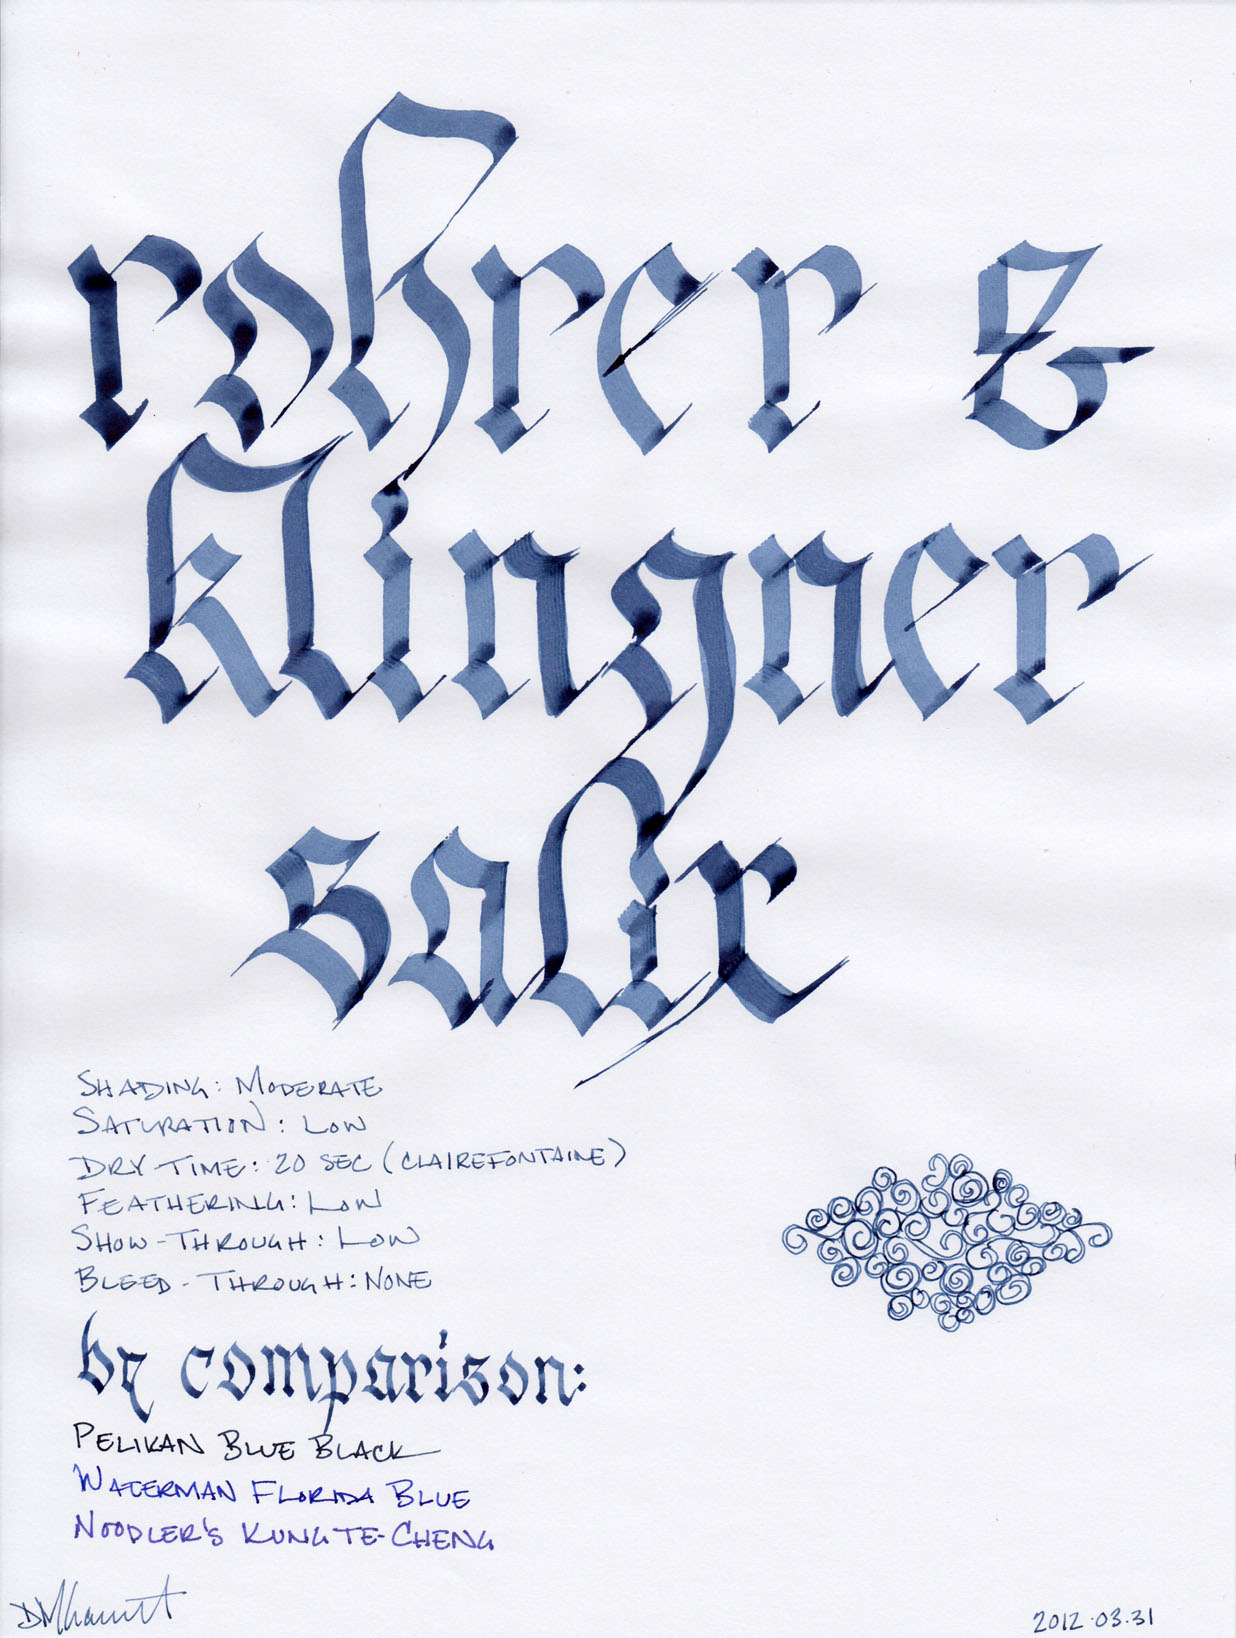 rohrer &
klingner
salix
SHADING: MODERATE
SATURATION: LOW
DRY-TIME: 20 SEC (CLAIREFONTAINE)
FEATHERING: LOW
SHOW-THROUGH: LOW
BLEED-THROUGH: NONE
by comparison:
PELIKAN BLUE BLACK
WATERMAN FLORIDA BLUE
NOODLER'S KUNG TE-CHENG
2012.03.31